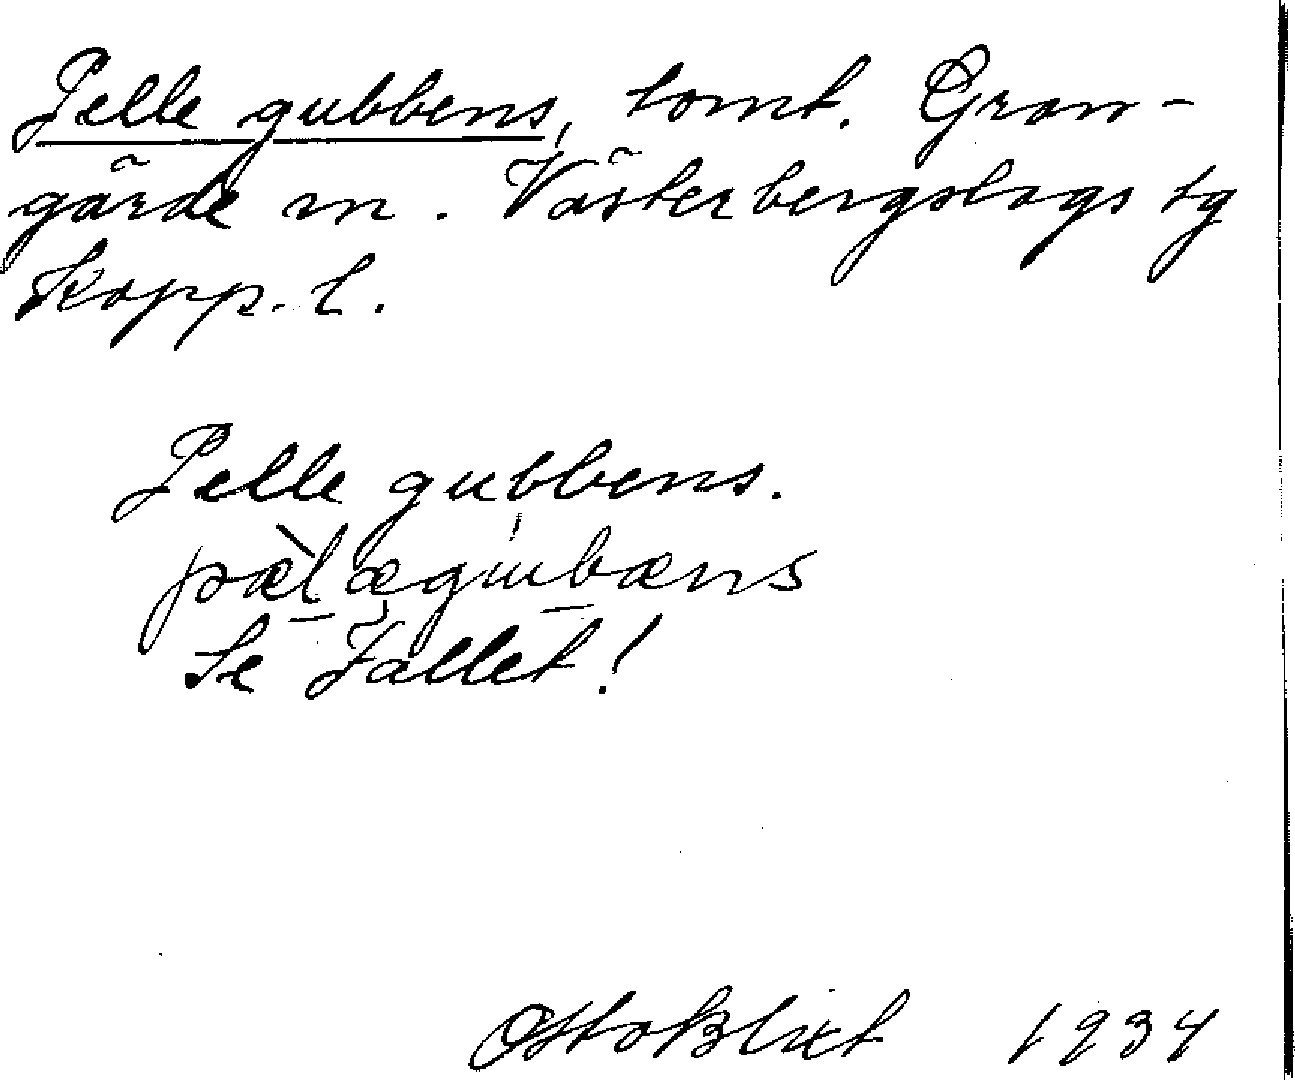 Pelle gubbens, tomt. Gran-
gärde sn. Västerbergslags tg
Kopp. l.
Pelle gubbens.
pæ̀lægubæns
Se Fallet!
Otto Blixt 1934